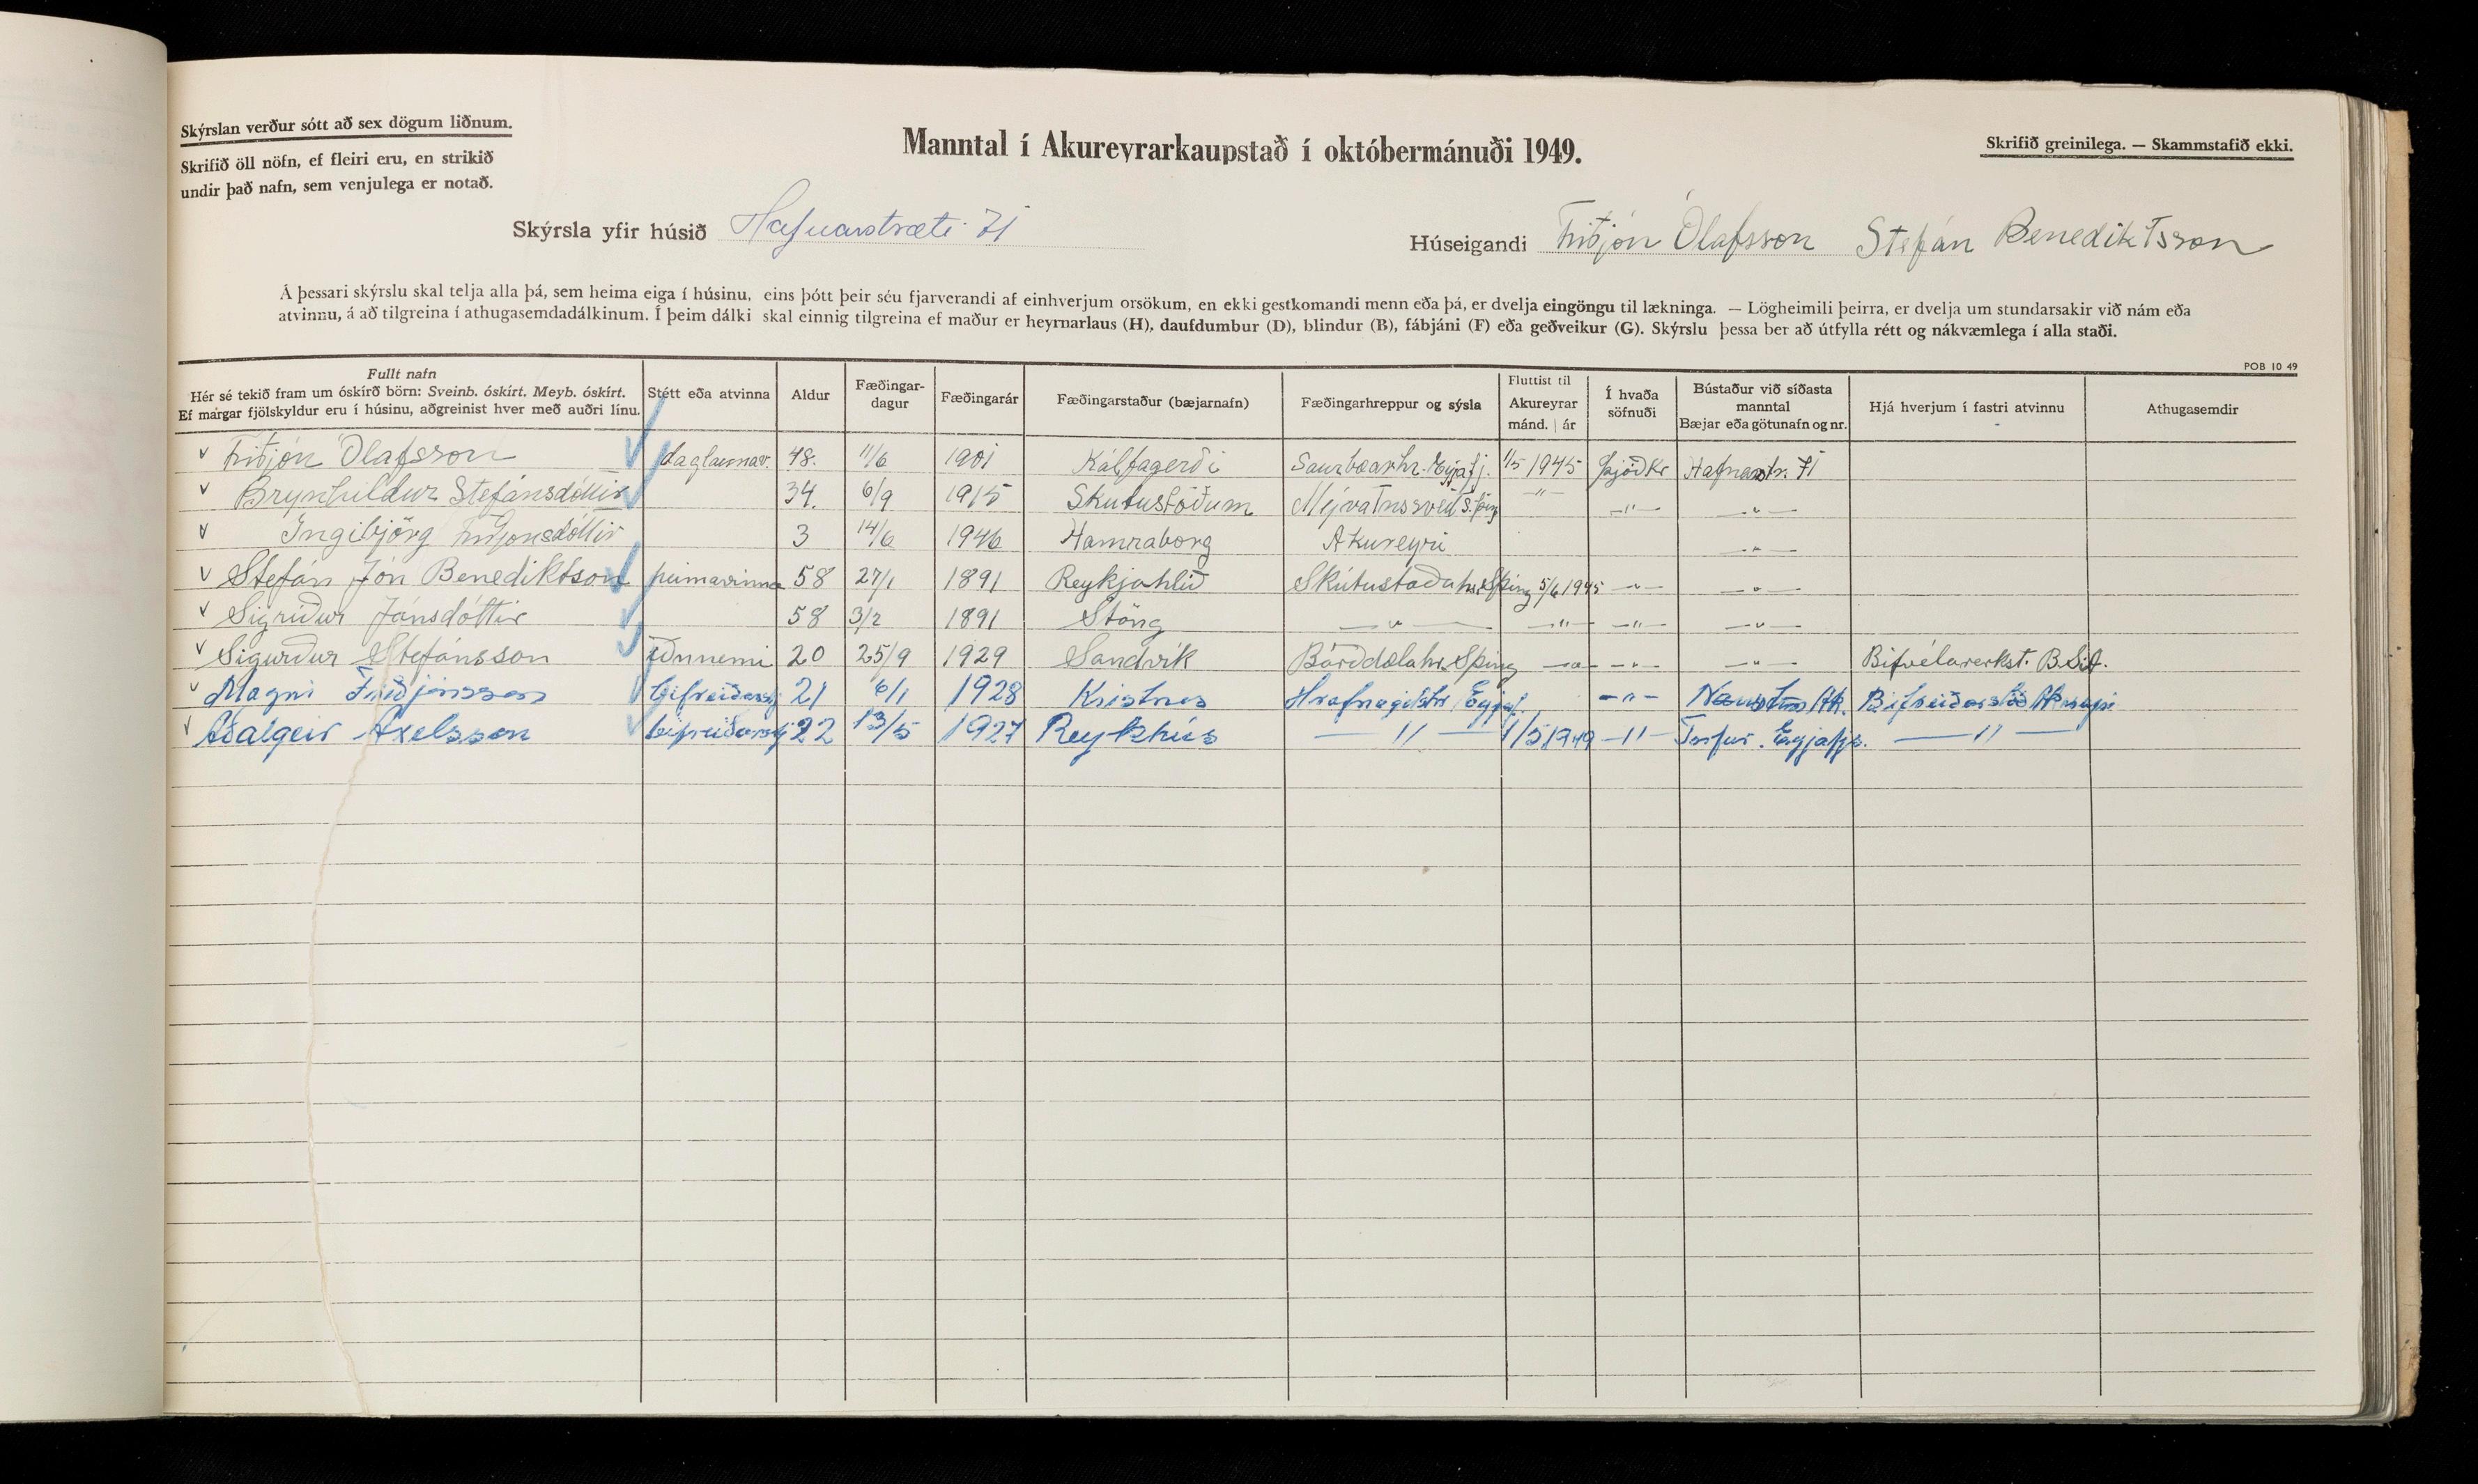 Skýrslan verður sótt að sex dögum liðnum.
Skrifið öll nöfn, ef fleiri eru, en strikið
undir það nafn, sem venjulega er notað.
Manntal í Akureyrarkaupstað í októbermánuði 1949.
Skrifið greinilega. — Skammstafið ekki.
Skýrsla yfir húsið Hafnarstræti 71
Húseigandi Friðjón Ólafsson Stefán Benediktsson
Á þessari skýrslu skal telja alla þá, sem heima eiga í húsinu, eins þótt þeir séu fjarverandi af einhverjum orsökum, en ekki gestkomandi menn eða þá, er dvelja eingöngu til lækninga. — Lögheimili þeirra, er dvelja um stundarsakir við nám eða
atvinnu, á að tilgreina í athugasemdadálkinum. Í þeim dálki skal einnig tilgreina ef maður er heyrnarlaus (H), daufdumbur (D), blindur (B), fábjáni (F) eða geðveikur (G). Skýrslu þessa ber að útfylla rétt og nákvæmlega í alla staði.
POB 10 49
Fullt nafn
Hér sé tekið fram um óskírð börn: Sveinb. óskírt. Meyb. óskírt.
Ef margar fjölskyldur eru í húsinu, aðgreinist hver með auðri línu.
Stétt eða atvinna
Aldur
Fæðingar-
dagur
Fæðingarár
Fæðingarstaður (bæjarnafn)
Fæðingarhreppur og sýsla
Fluttist til
Akureyrar
mánd. | ár
Í hvaða
söfnuði
Bústaður við síðasta
manntal
Bæjar eða götunafn og nr.
Hjá hverjum í fastri atvinnu
Athugasemdir
v Friðjón Ólafsson daglaunav. 48. 11/6 1901 Kálfagerði Saurbæarhr. Eyjafj. 1/5 1945 Þjóðkr Hafnarstr. 71
v Brynhildur Stefánsdóttir 34. 6/9 1915 Skutustöðum Mývatnssveit S.þing —"— —"— —"—
v Ingibjörg Friðjónsdóttir 3 14/6 1946 Hamraborg Akureyri —"—
v Stefán Jón Benediktson heimavinna 58 27/1 1891 Reykjahlíð Skútustaðahr. S þing 5/6 1945 —"— —"—
v Sigríður Jónsdóttir 58 3/2 1891 Stöng —"— —"— —"— —"—
v Sigurður Stefánsson iðnnemi 20 25/9 1929 Sandvík Bárðdælahr. S þing —"— —"— —"— Bifvélaverkst. B.S.A.
v Magni Friðjónsson bifreiðarstj 21 6/1 1928 Kristnes Hrafnagilshr. Eyjaf. —"— Ak. Bifreiðarstöð Akureyri
v Aðalgeir Axelsson bifreiðarstj 22 13/5 1927 Reykhús —"— 1/5 1949 —"— Torfur. Eyjafjs. —"—